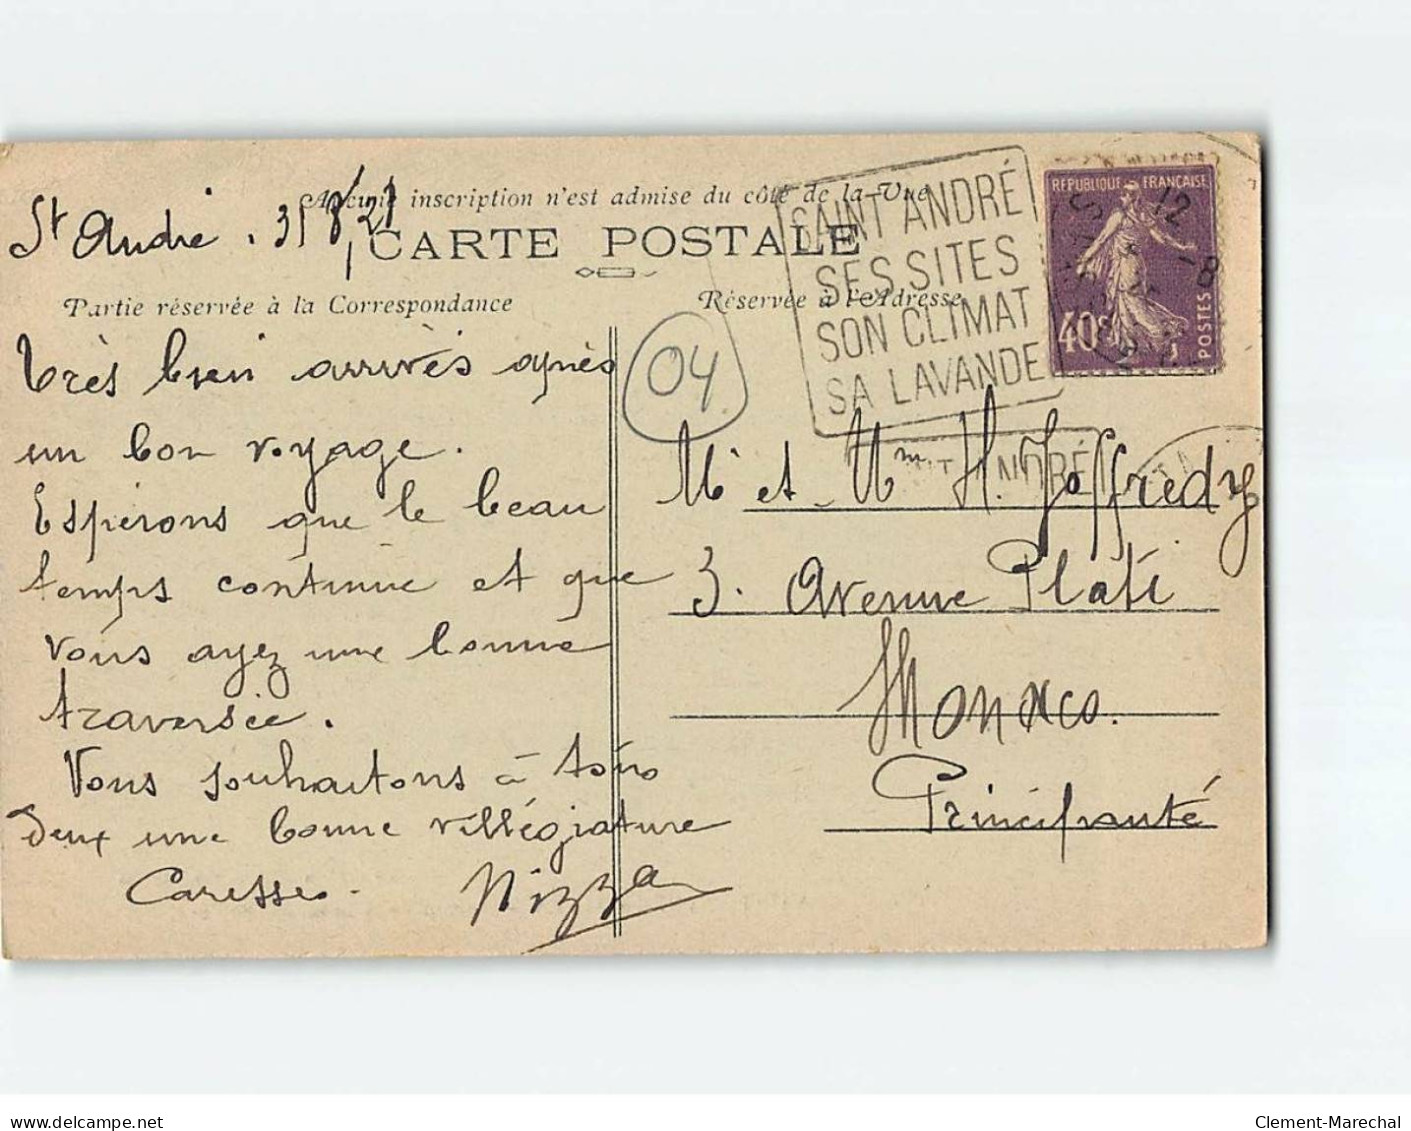 Aucune inscription n'est admise du côté de la Vue
St André
CARTE POSTALE
Partie réservée à la Correspondance
Réservée à l'Adresse
SAINT ANDRÉ
SES SITES
SON CLIMAT
SA LAVANDE
RÉPUBLIQUE FRANÇAISE
40c
POSTES
12
-8
04
Très bien arrivés après
un bon voyage.
Espérons que le beau
temps continue et que
vous ayez une bonne
traversée.
Vous souhaitons à tous
deux une bonne villégiature
Caresses.
Nizza
ANDRÉ
Mr et Mme H. Joffredy
3. Avenue Plati
Monaco.
Principauté
www.delcampe.net
Clement-Marechal